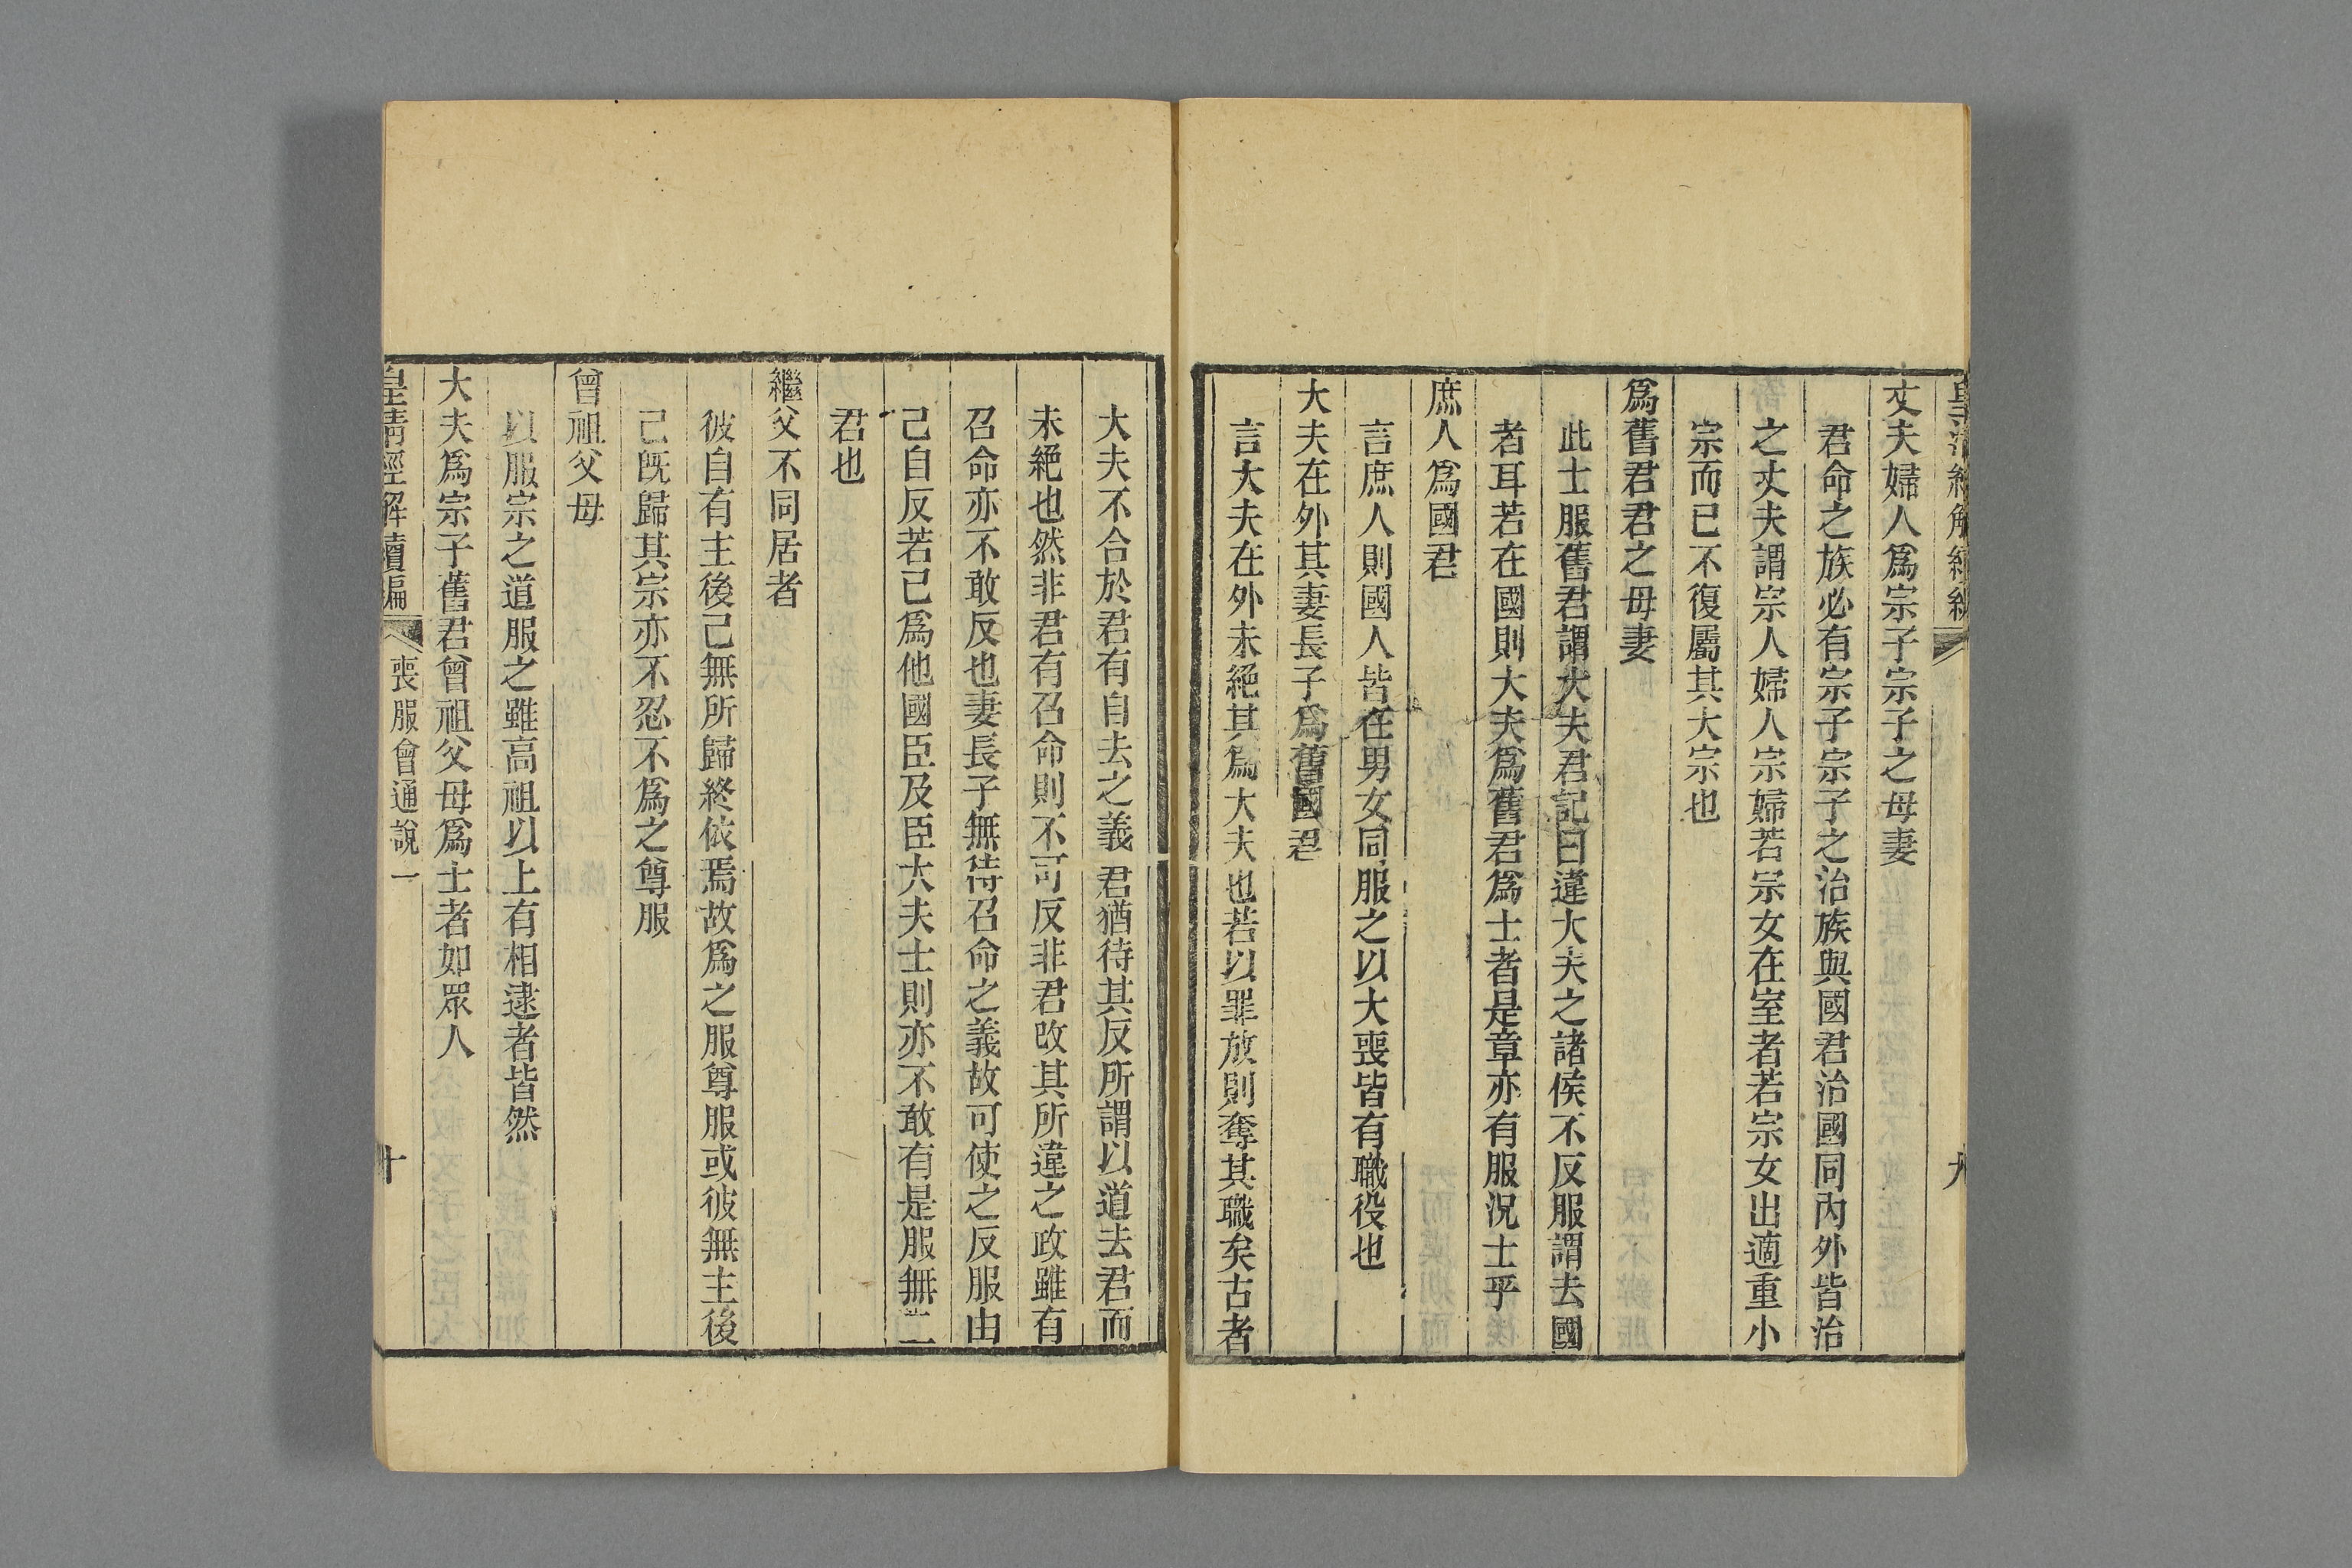 皇清經解續編
九
丈夫婦人爲宗子宗子之母妻
君命之族必有宗子宗子之治族與國君治國同內外皆治
之丈夫謂宗人婦人宗婦若宗女在室者若宗女出適重小
宗而已不復屬其大宗也
爲舊君君之母妻
此士服舊君謂大夫君記曰違大夫之諸侯不反服謂去國
者耳若在國則大夫爲舊君爲士者是章亦有服況士乎
庶人爲國君
言庶人則國人皆在男女同服之以大喪皆有職役也
大夫在外其妻長子爲舊國君
言大夫在外未絕其爲大夫也若以罪放則奪其職矣古者
大夫不合於君有自去之義君猶待其反所謂以道去君而
未絕也然非君有召命則不可反非君改其所違之政雖有
召命亦不敢反也妻長子無待召命之義故可使之反服由
己自反若已爲他國臣及臣大夫士則亦不敢有是服無二
君也
繼父不同居者
彼自有主後己無所歸終依焉故爲之服尊服或彼無主後
己既歸其宗亦不忍不爲之尊服
曾祖父母
以服宗之道服之雖高祖以上有相逮者皆然
大夫爲宗子舊君曾祖父母爲士者如眾人
皇清經解續編
喪服會通說一
十